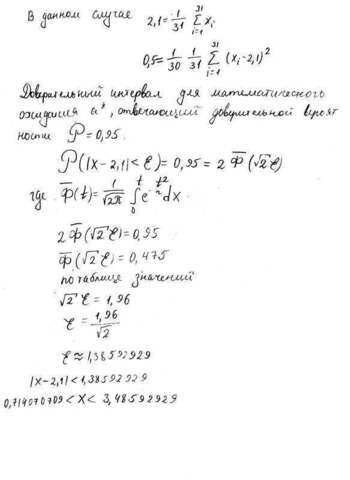 В данном случае 2,1 = 1/31 ∑_{i=1}^{31} x_i
0,5 = 1/30 · 1/31 ∑_{i=1}^{31} (x_i - 2,1)²
Доверительный интервал для математического
ожидания a*, отвечающий доверительной вероят
ности P = 0,95.
P(|x - 2,1| < ε) = 0,95 = 2 Ф(√2 ε)
где Ф(t) = 1/√2π ∫_0^t e^{-t²/2} dx
2 Ф(√2 ε) = 0,95
Ф(√2 ε) = 0,475
по таблице значений
√2 ε = 1,96
ε = 1,96/√2
ε ≈ 1,38592929
|x - 2,1| < 1,38592929
0,714070709 < x < 3,48592929